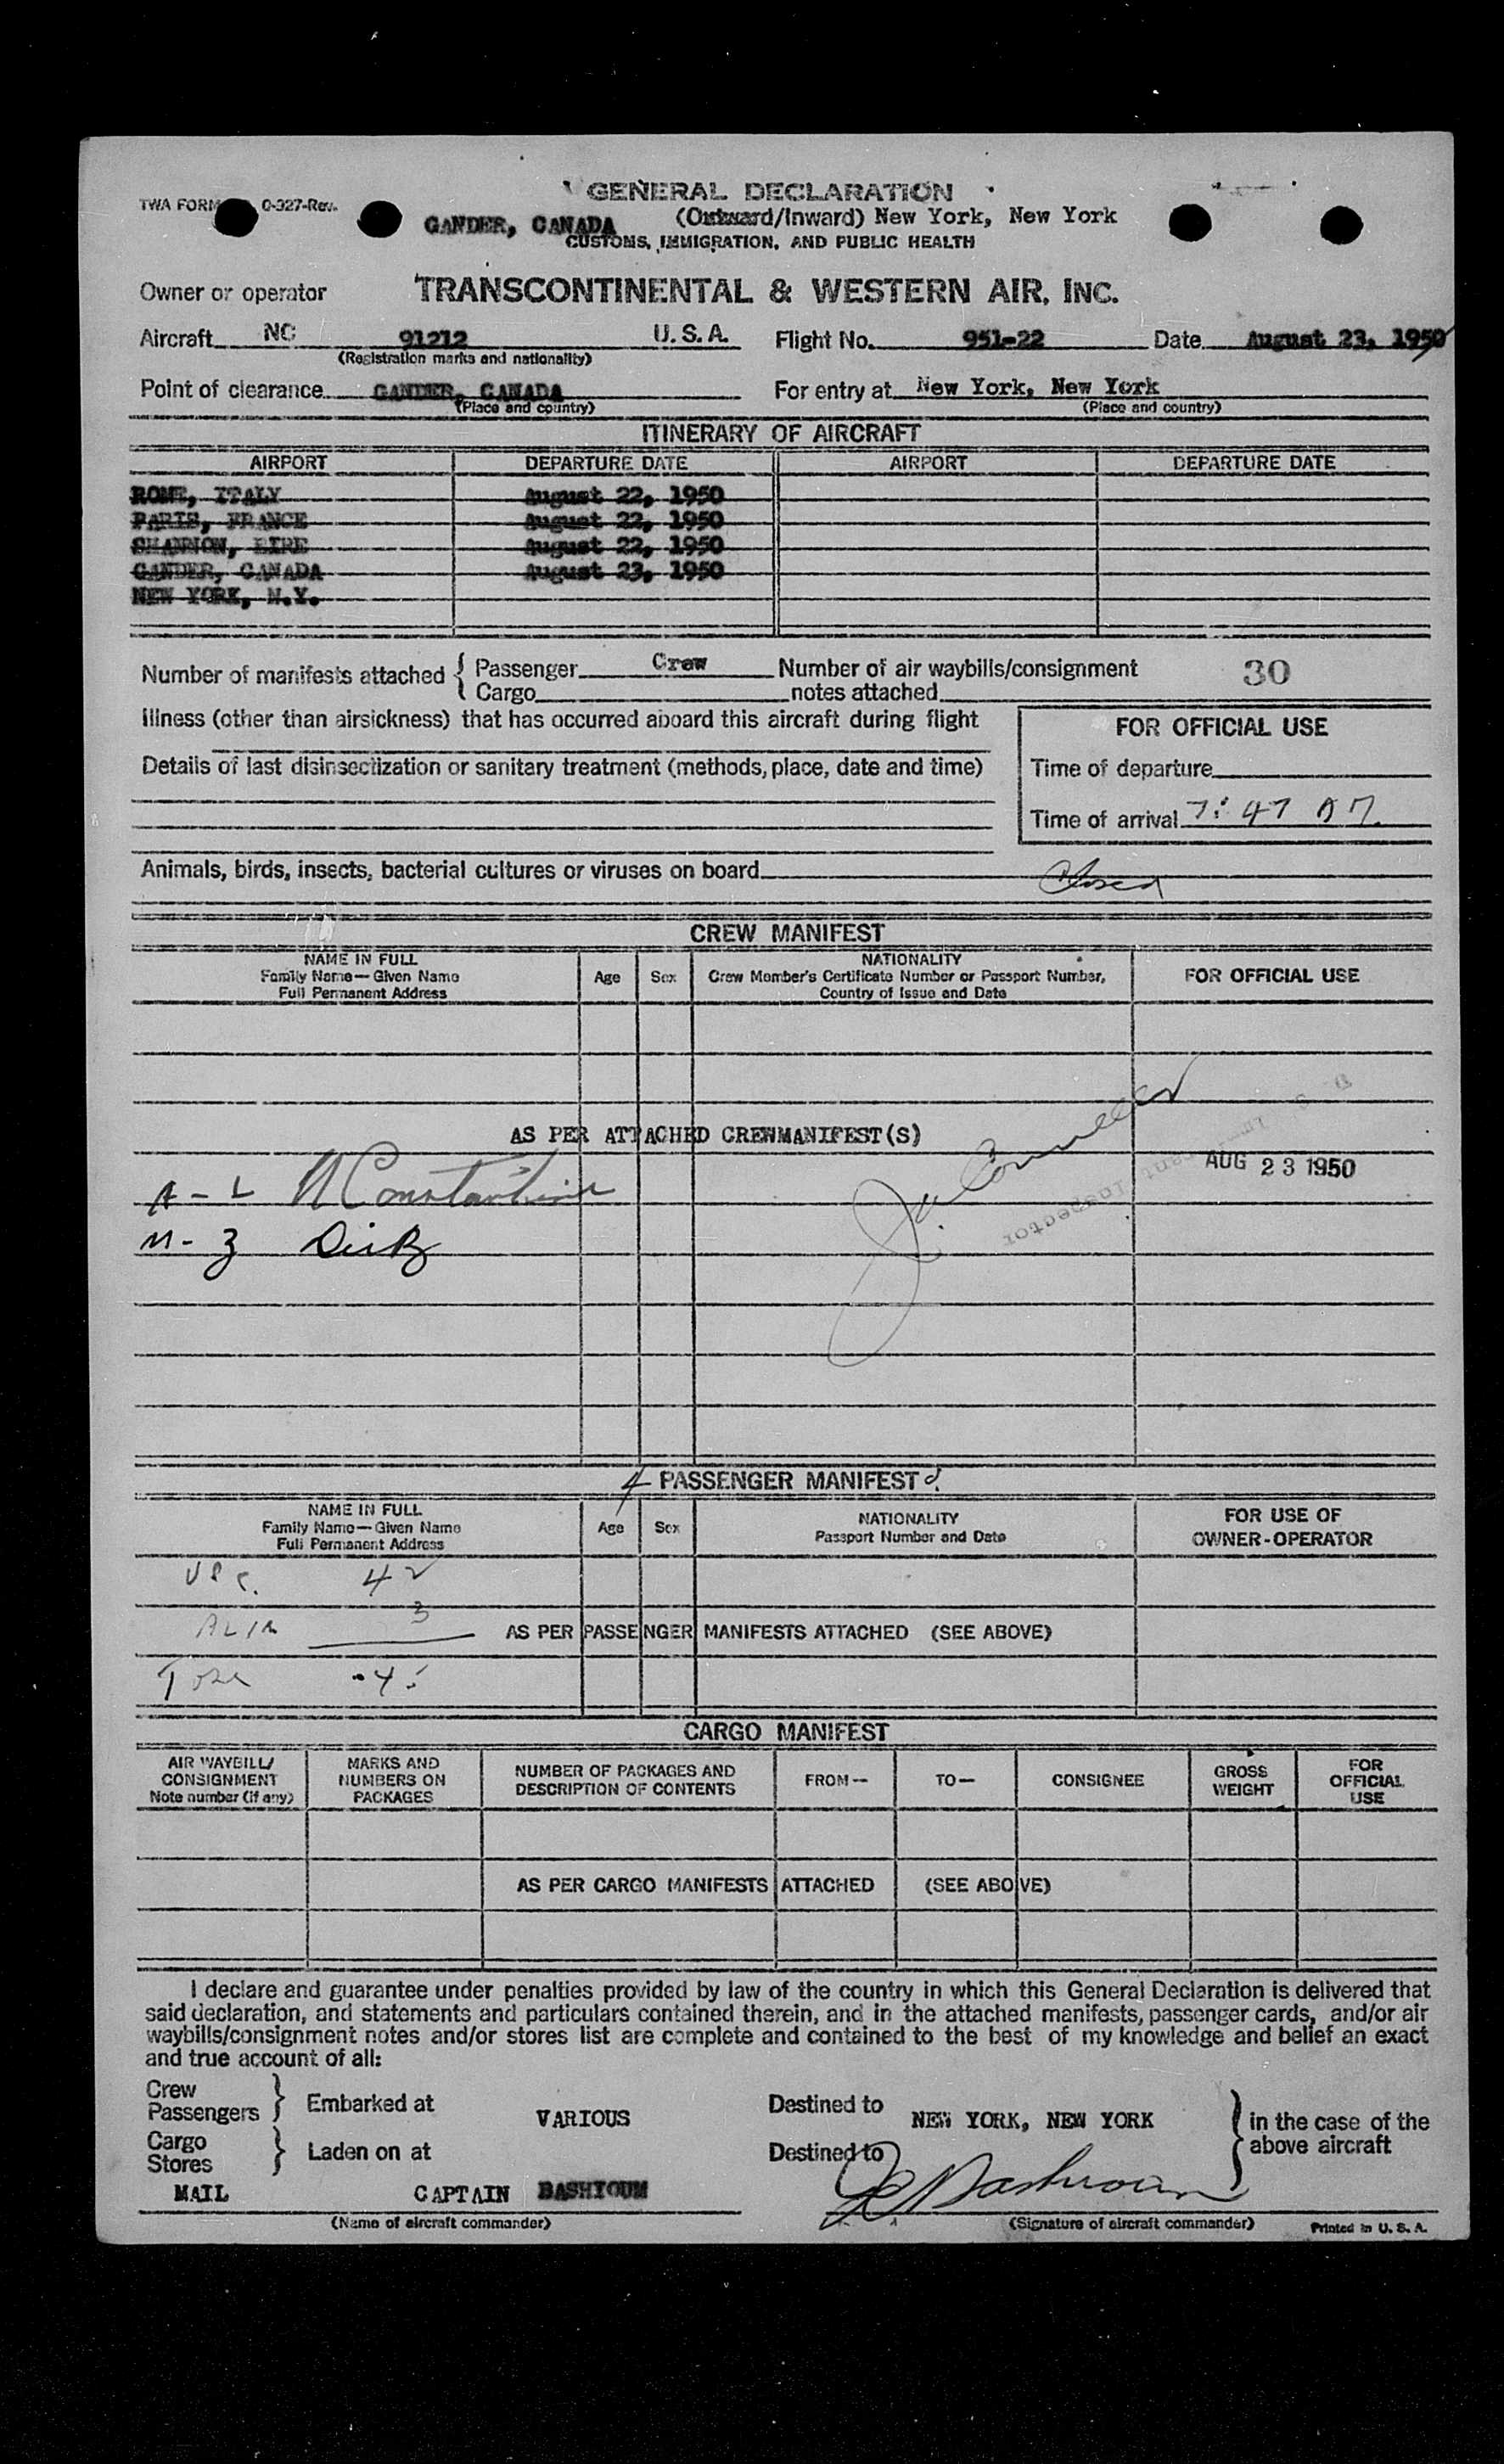 GENERAL DECLARATION
TWA FORM 0-327-Rev.
GANDER, CANADA (Outward/Inward) New York, New York
CUSTOMS, IMMIGRATION, AND PUBLIC HEALTH
Owner or operator TRANSCONTINENTAL & WESTERN AIR, INC.
Aircraft NC 91212 U.S.A. Flight No. 951-22 Date August 23, 1950
(Registration marks and nationality)
Point of clearance GANDER, CANADA For entry at New York, New York
(Place and country) (Place and country)
ITINERARY OF AIRCRAFT
AIRPORT DEPARTURE DATE AIRPORT DEPARTURE DATE
ROME, ITALY August 22, 1950
PARIS, FRANCE August 22, 1950
SHANNON, EIRE August 22, 1950
GANDER, CANADA August 23, 1950
NEW YORK, N.Y.
Number of manifests attached { Passenger Crew Number of air waybills/consignment 30
Cargo notes attached
Illness (other than airsickness) that has occurred aboard this aircraft during flight
FOR OFFICIAL USE
Details of last disinsectization or sanitary treatment (methods, place, date and time)
Time of departure
Time of arrival 7:47 AM.
Animals, birds, insects, bacterial cultures or viruses on board
Closed
CREW MANIFEST
NAME IN FULL
Family Name—Given Name
Full Permanent Address
Age Sex
NATIONALITY
Crew Member's Certificate Number or Passport Number,
Country of Issue and Date
FOR OFFICIAL USE
AS PER ATTACHED CREWMANIFEST(S)
AUG 23 1950
Immigrant Inspector
A-L N Constantine
M-Z
4 PASSENGER MANIFEST
NAME IN FULL
Family Name—Given Name
Full Permanent Address
Age Sex
NATIONALITY
Passport Number and Date
FOR USE OF
OWNER-OPERATOR
USC. 42
3
AS PER PASSENGER MANIFESTS ATTACHED (SEE ABOVE)
45
CARGO MANIFEST
AIR WAYBILL/
CONSIGNMENT
Note number (if any)
MARKS AND
NUMBERS ON
PACKAGES
NUMBER OF PACKAGES AND
DESCRIPTION OF CONTENTS
FROM— TO— CONSIGNEE
GROSS
WEIGHT
FOR
OFFICIAL
USE
AS PER CARGO MANIFESTS ATTACHED (SEE ABOVE)
I declare and guarantee under penalties provided by law of the country in which this General Declaration is delivered that
said declaration, and statements and particulars contained therein, and in the attached manifests, passenger cards, and/or air
waybills/consignment notes and/or stores list are complete and contained to the best of my knowledge and belief an exact
and true account of all:
Crew
Passengers } Embarked at VARIOUS Destined to NEW YORK, NEW YORK } in the case of the
above aircraft
Cargo
Stores } Laden on at Destined to
MAIL CAPTAIN BASHIOUM
(Name of aircraft commander) (Signature of aircraft commander) Printed in U. S. A.